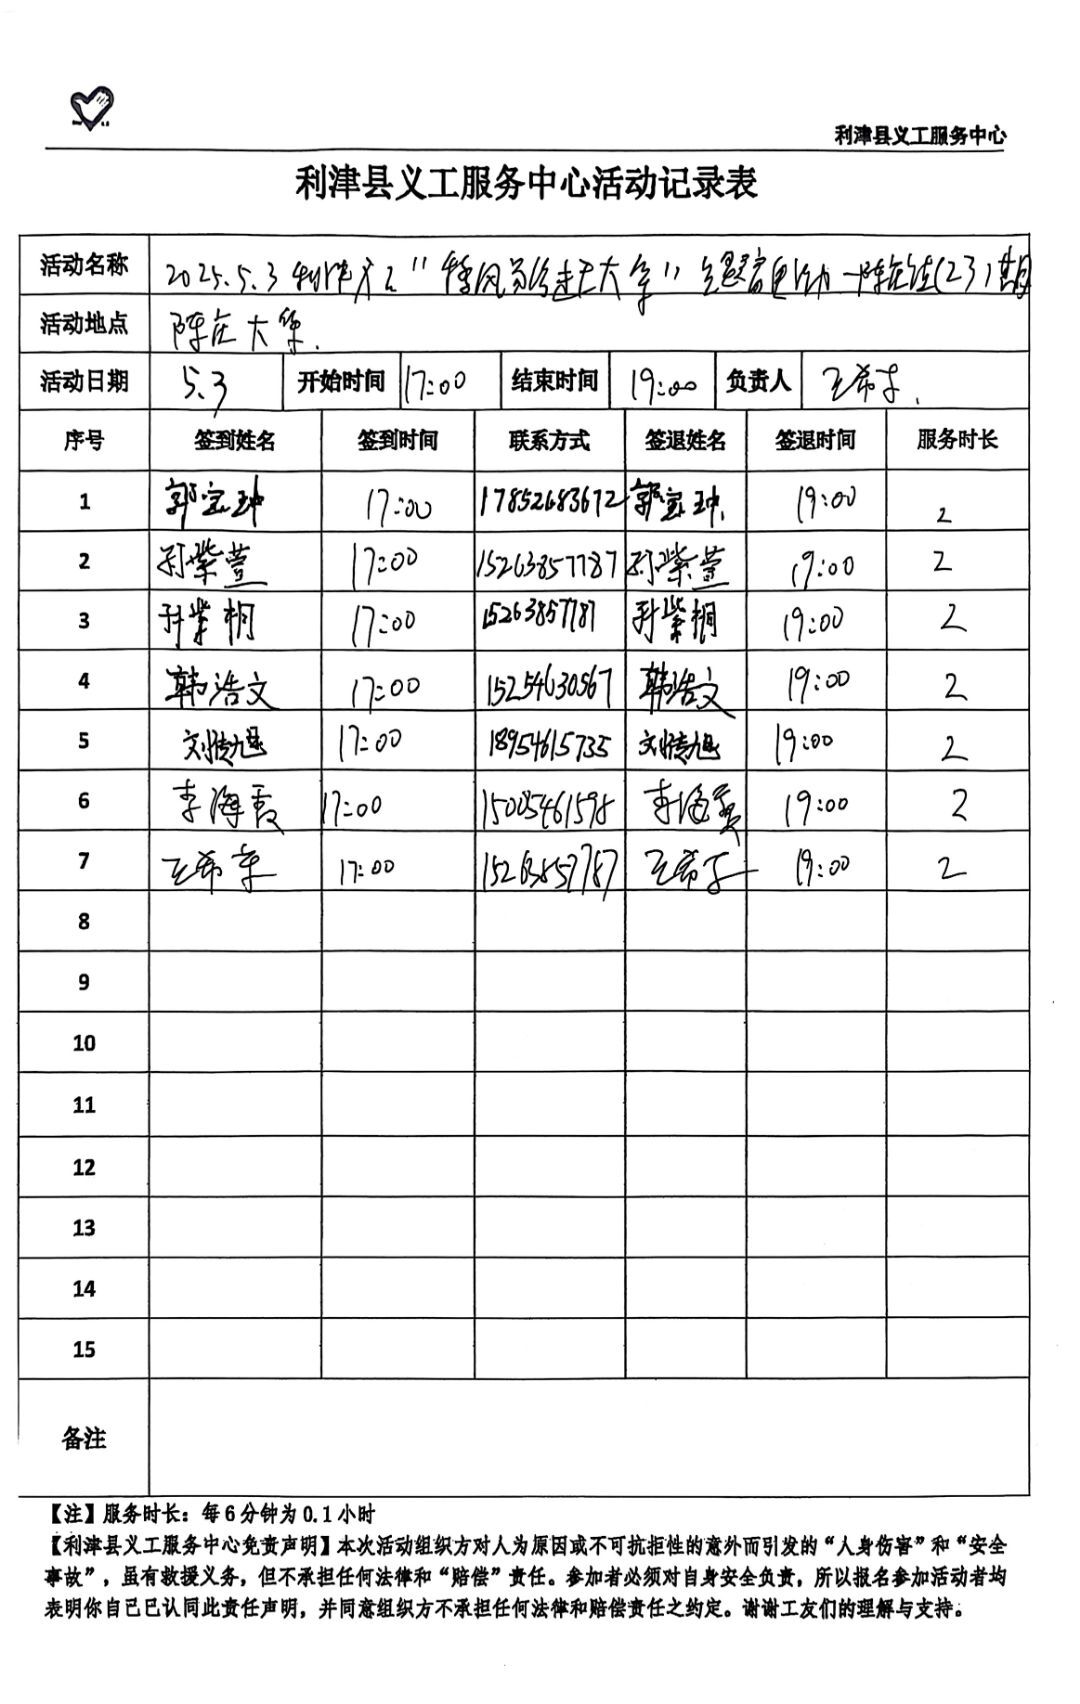 利津县义工服务中心
利津县义工服务中心活动记录表
活动名称 2025.5.3 利津义工 "走大集" 陈庄 (23) 期
活动地点 陈庄大集.
活动日期 5.3 开始时间 17:00 结束时间 19:00 负责人 王希
序号 签到姓名 签到时间 联系方式 签退姓名 签退时间 服务时长
1 郭宝珅 17:00 17852683672 郭宝珅. 19:00 2
2 孙紫萱 17:00 15263857787 孙紫萱 19:00 2
3 孙紫桐 17:00 15263857787 孙紫桐 19:00 2
4 韩浩文 17:00 15254630567 韩浩文 19:00 2
5 刘 17:00 18954615735 刘 19:00 2
6 李海霞 17:00 李海霞 19:00 2
7 王希 17:00 15263857787 王希 19:00 2
8
9
10
11
12
13
14
15
备注
【注】服务时长：每6分钟为0.1小时
【利津县义工服务中心免责声明】本次活动组织方对人为原因或不可抗拒性的意外而引发的“人身伤害”和“安全
事故”，虽有救援义务，但不承担任何法律和“赔偿”责任。参加者必须对自身安全负责，所以报名参加活动者均
表明你自己已认同此责任声明，并同意组织方不承担任何法律和赔偿责任之约定。谢谢工友们的理解与支持。